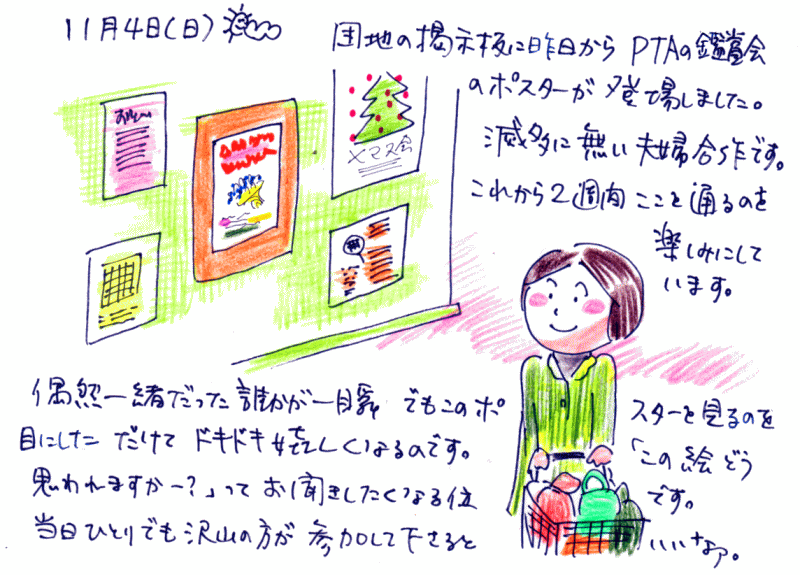 11月4日(日)
団地の掲示板に昨日から PTAの鑑賞会
のポスターが 登場しました。
滅多に無い夫婦合作です。
これから2週間 ここを通るのを
楽しみにして
います。
Xマス会
偶然一緒だった誰かが一瞬 でもこのポ スターを見るのを
目にした だけで ドキドキ嬉しくなるのです。 「この絵どう
思われますかー?」って お聞きしたくなる位 です。
当日ひとりでも沢山の方が 参加して下さると いいなァ。